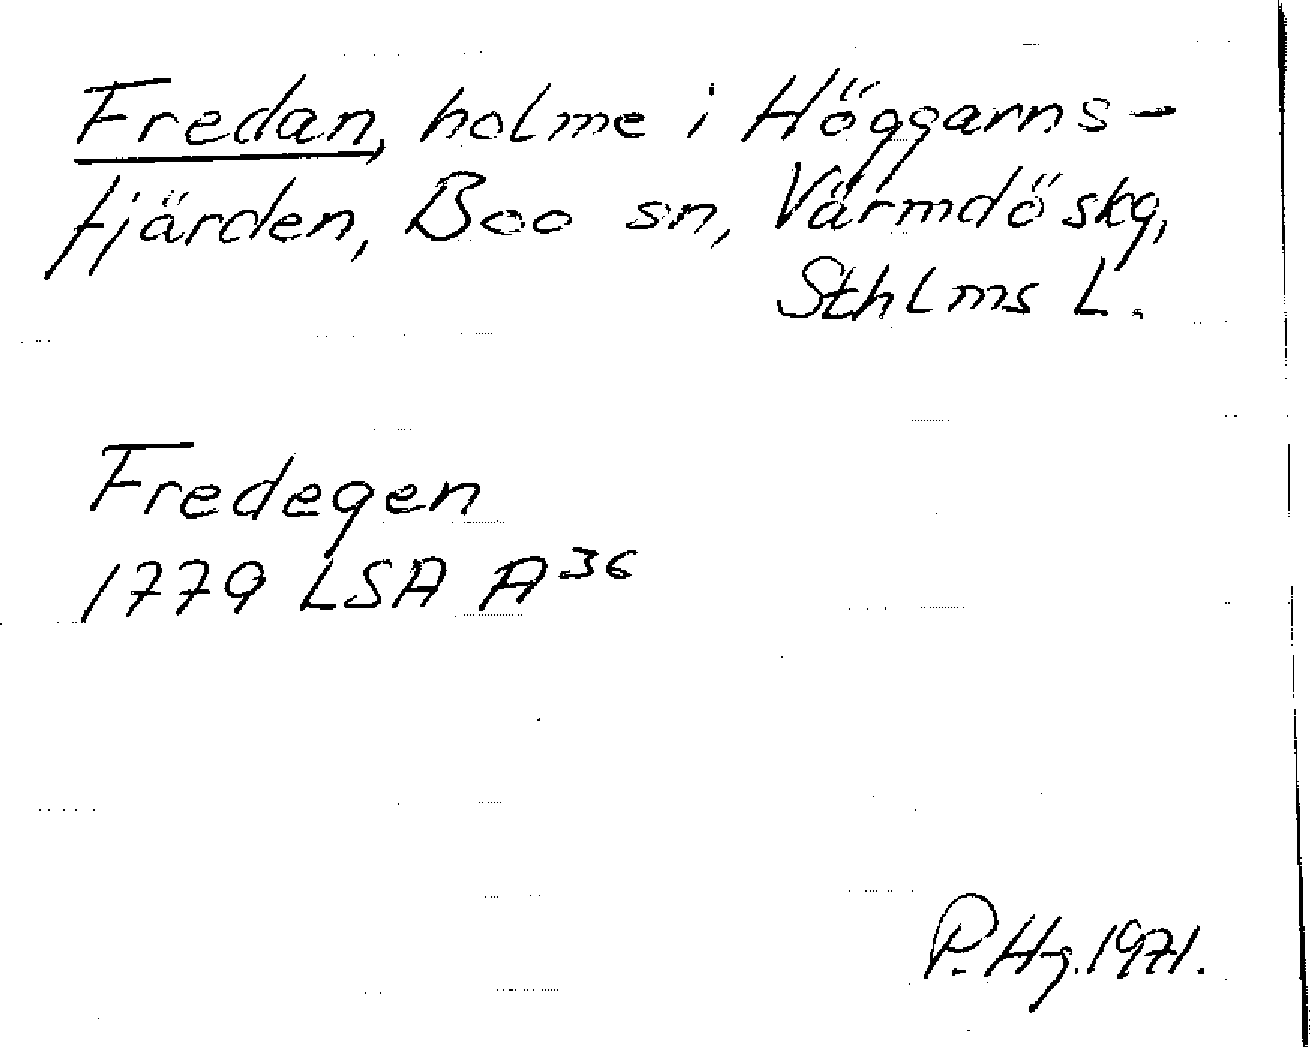 Fredan, holme i Höggarns-
fjärden, Boo sn, Värmdö skg,
Sthlms L.
Fredegen
1779 LSA A³⁶
P. Hg. 1971.